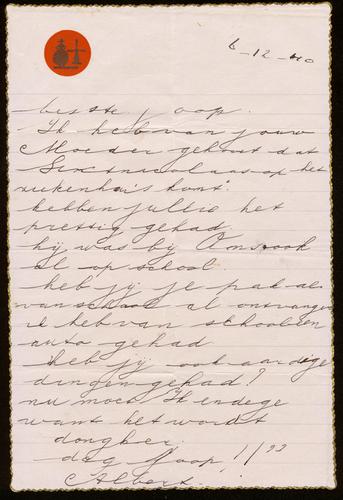 6-12-40
beste Joop.
Ik heb van jouw
Moeder gehoort dat
Sintnicolaas op het
ziekenhuis komt.
hebben jullie het
prettig gehad
hij was by Ons ook
al op school.
heb jij je pak al
van school al ontvangen
ik heb van school een
auto gehad
heb jij ook aardige
dingen gehad?
nu moet Ik endege
want het wordt
donqker.
dag Joop, 1/
Albert.